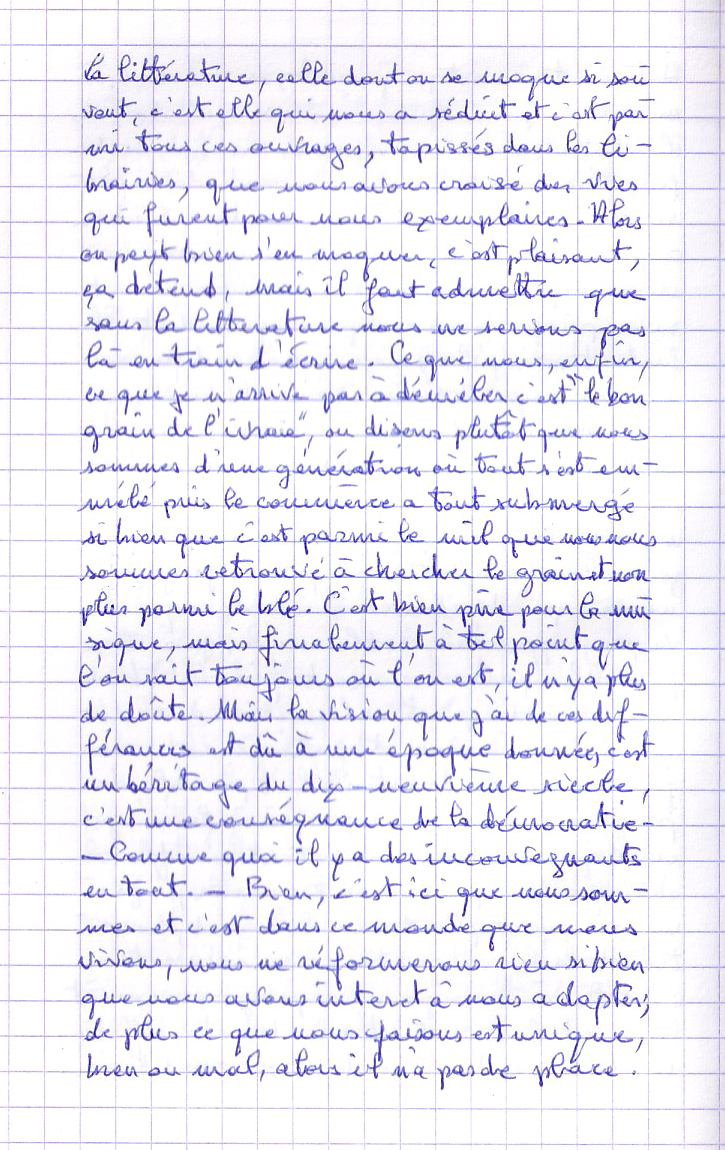 La littérature, celle dont on se moque si sou
vent, c'est elle qui nous a séduit et c'est par
mi tous ces ouvrages, tapissés dans les li-
brairies, que nous avons croisé des vies
qui furent pour nous exemplaires. Alors
on peut bien s'en moquer, c'est plaisant,
ça détend, mais il faut admettre que
sans la litterature nous ne serions pas
là en train d'écrire. Ce que nous, enfin,
ce que je n'arrive pas à démêler c'est "le bon
grain de l'ivraie", ou disons plutôt que nous
sommes d'une génération où tout s'est em-
mêlé puis le commerce a tout submergé
si bien que c'est parmi le mil que nous nous
sommes retrouvé à chercher le grain et non
plus parmi le blé. C'est bien pire pour la mu
sique, mais finalement à tel point que
l'on sait toujours où l'on est, il n'y a plus
de doûte. Mais la vision que j'ai de ces dif-
férances est dû à une époque donnée, c'est
un héritage du dix-neuvième siècle,
c'est une conséquance de la démocratie-
- Comme quoi il y a des inconvegnants
en tout. - Bien, c'est ici que nous som-
mes et c'est dans ce monde que nous
vivons, nous ne réformerons rien si bien
que nous avons interet à nous adapter,
de plus ce que nous faisons est unique,
bien ou mal, alors il n'a pas de place.